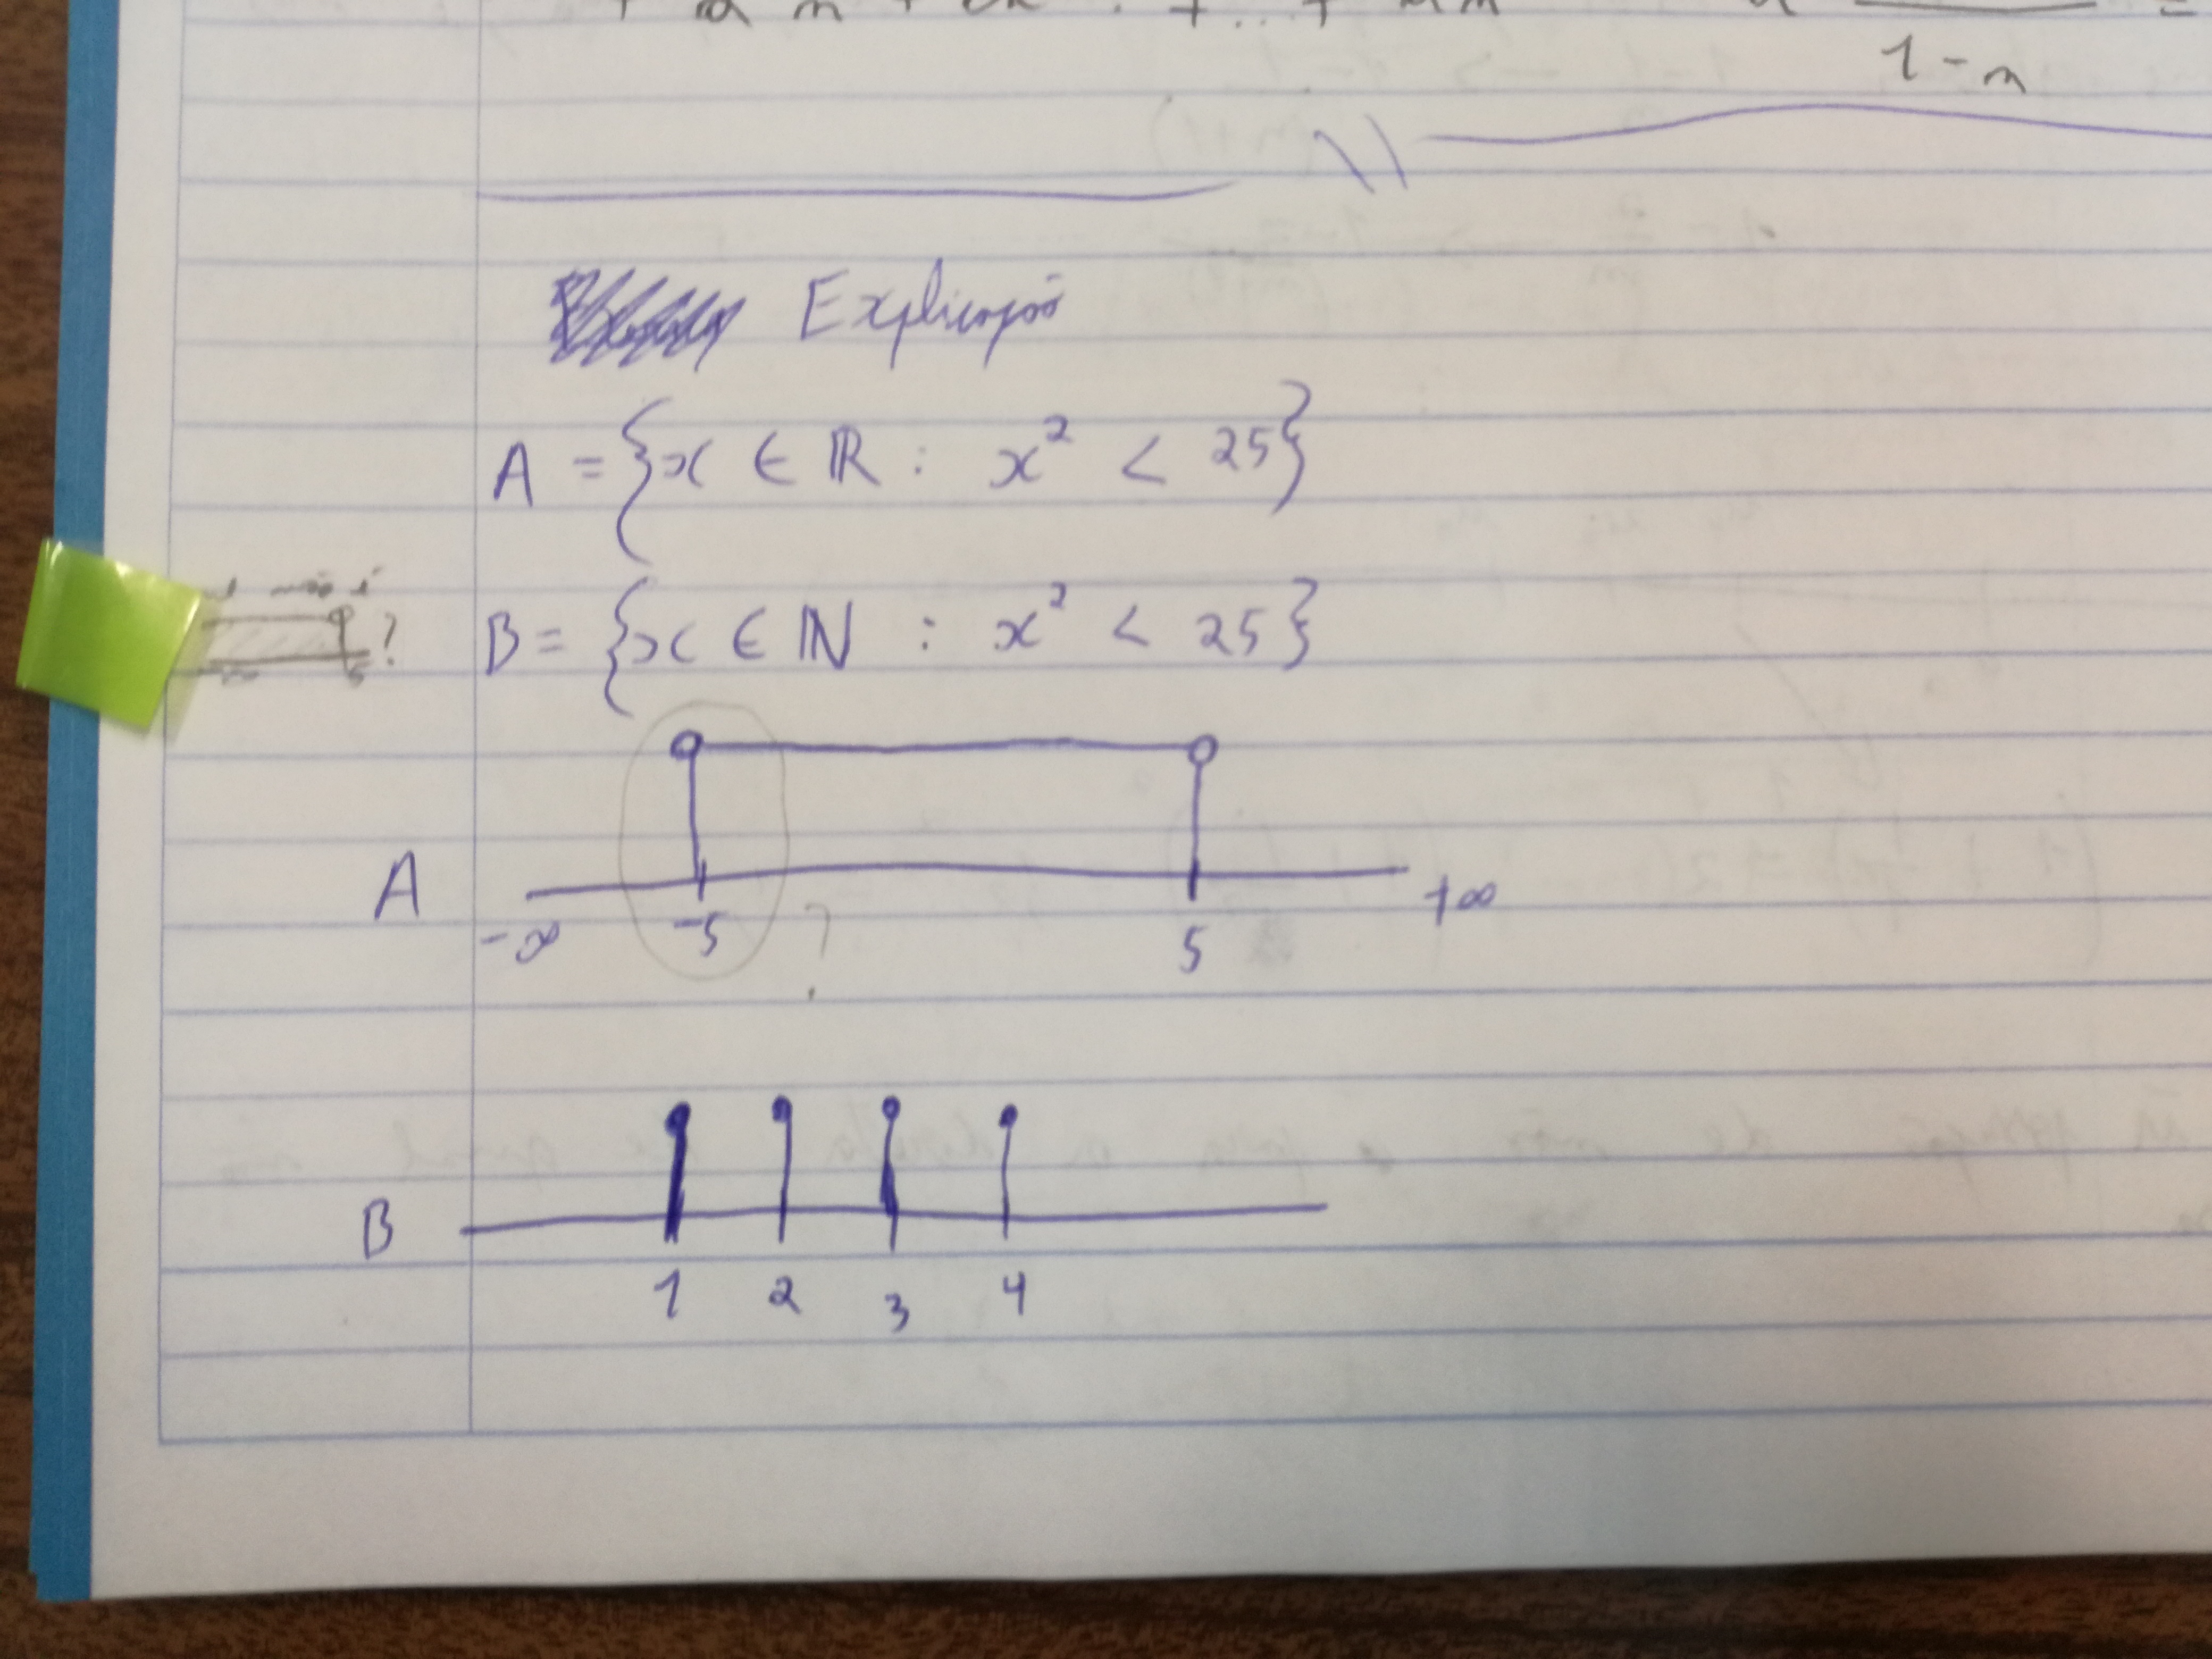 1-n
Explicação
A = {x ∈ ℝ : x² < 25}
não é
?
B = {x ∈ ℕ : x² < 25}
A
-∞ -5 5 +∞
?
B
1 2 3 4